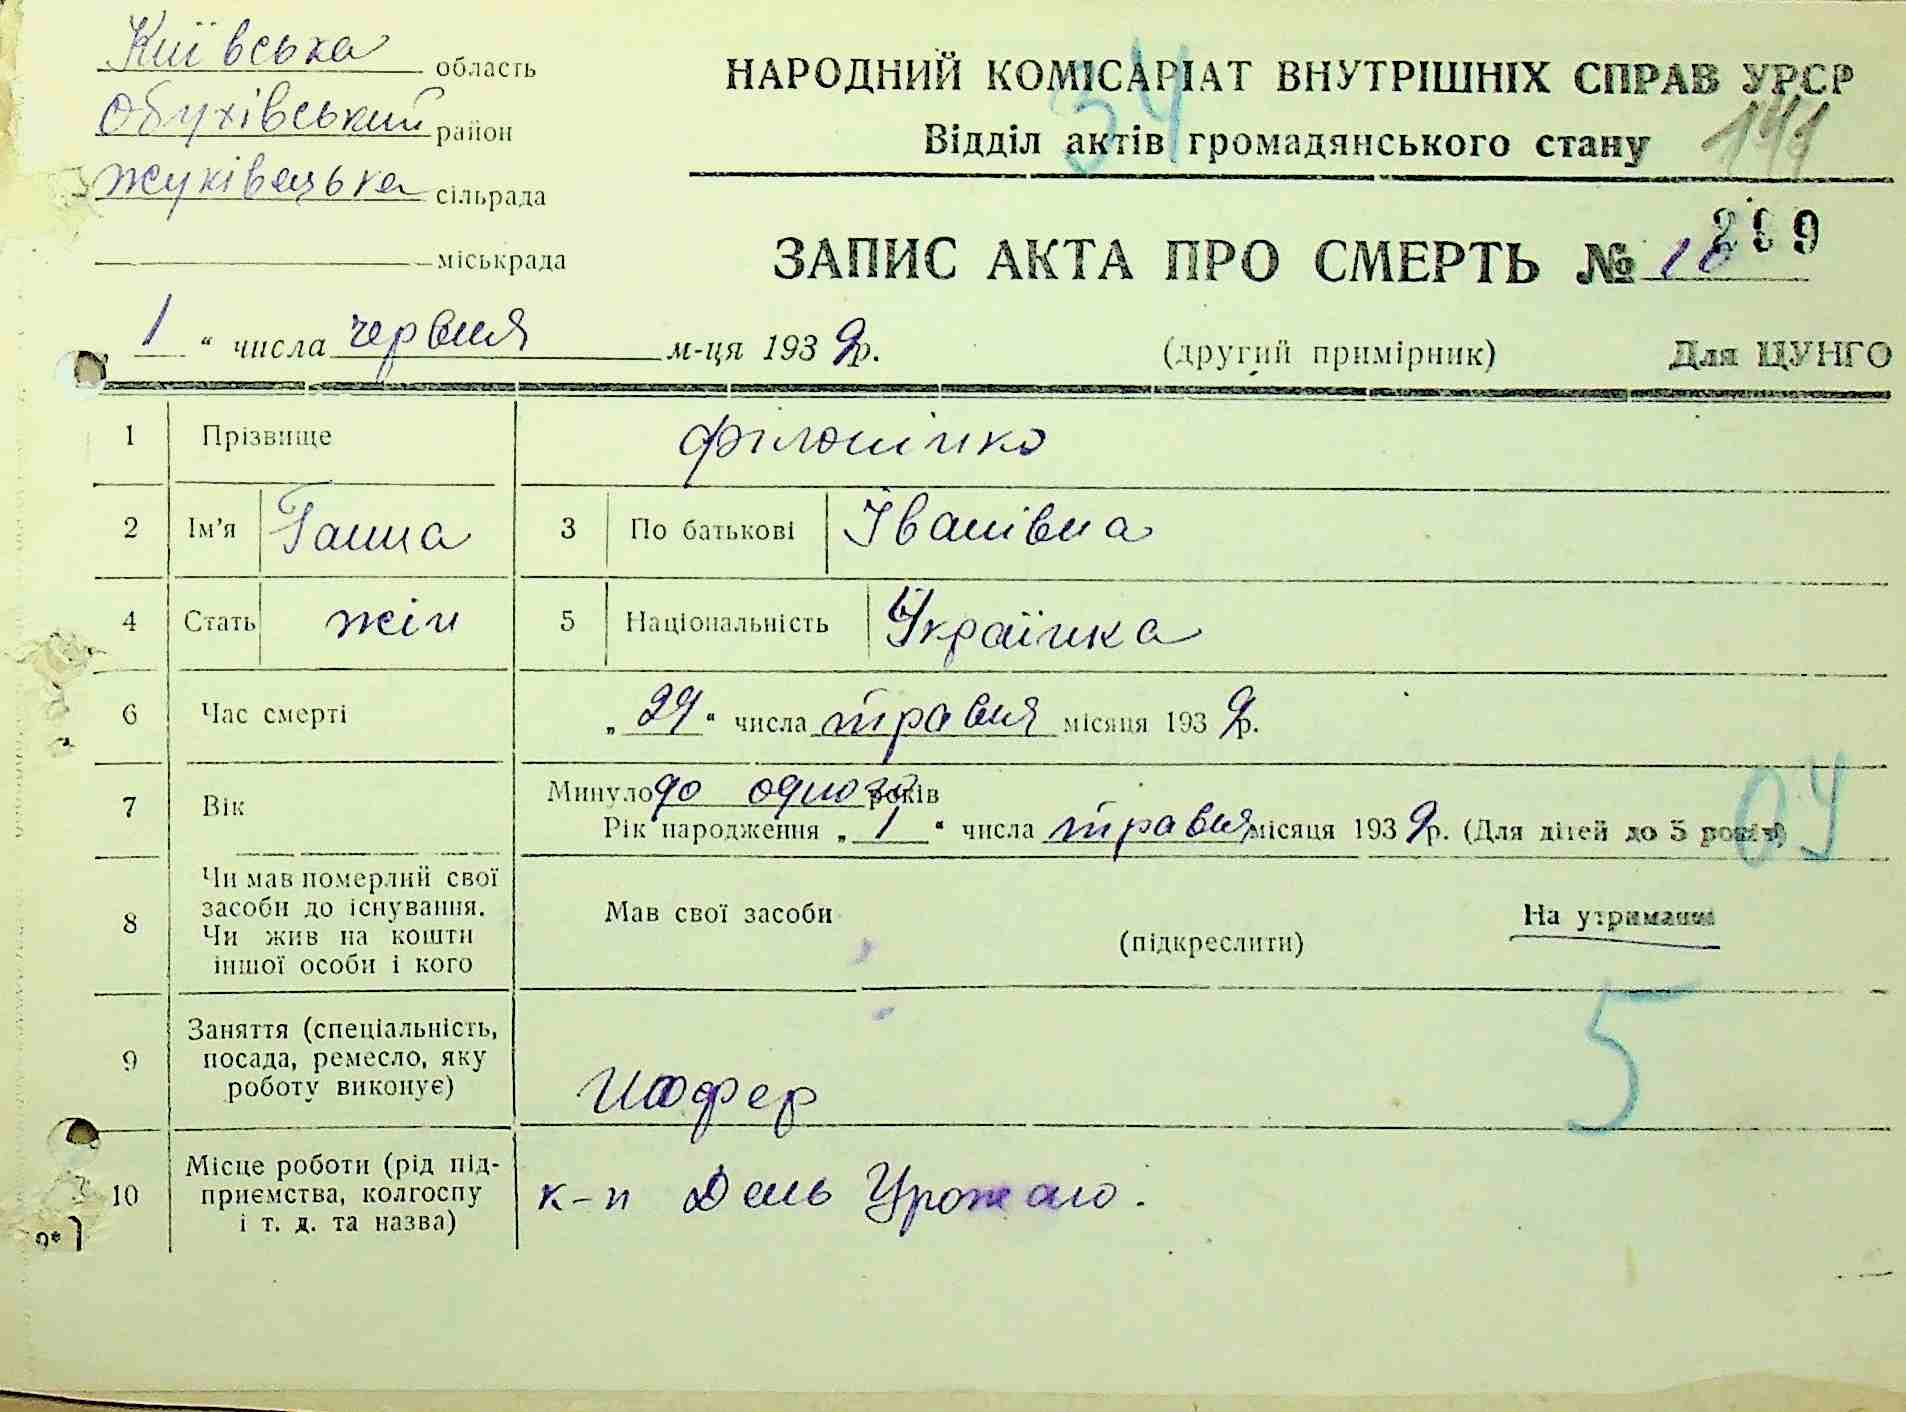 Київська область
Обухівський район
Жуківецька сільрада
міськрада
НАРОДНИЙ КОМІСАРІАТ ВНУТРІШНІХ СПРАВ УРСР
34
Відділ актів громадянського стану
ЗАПИС АКТА ПРО СМЕРТЬ № 10
299
1 " числа червня м-ця 1939р.
(другий примірник) Для ЦУНГО
1 Прізвище Філоніпко
2 Ім'я Ганна 3 По батькові Іванівна
4 Стать жін 5 Національність Українка
6 Час смерті „ 29 " числа травня місяця 1939р.
7 Вік Минуло до одного років
Рік народження „ 1 " числа травня місяця 1939р. (Для дітей до 5 років)
8 Чи мав померлий свої
засоби до існування.
Чи жив на кошти
іншої особи і кого
Мав свої засоби (підкреслити) На утриманні
5
9 Заняття (спеціальність,
посада, ремесло, яку
роботу виконує)
Шофер
10 Місце роботи (рід під-
приємства, колгоспу
і т. д. та назва)
к-п День Урожаю.